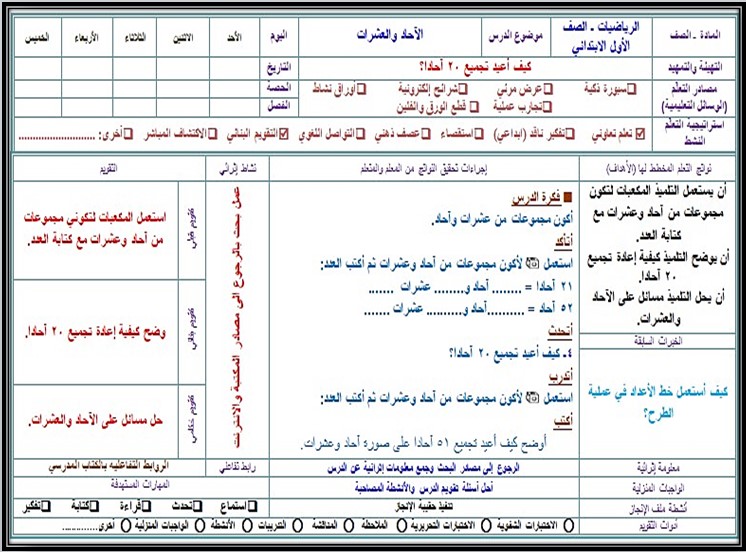 المادة ـ الصف
الرياضيات ـ الصف
الأول الابتدائي
موضوع الدرس
الآحاد والعشرات
اليوم
الأحد
الاثنين
الثلاثاء
الأربعاء
الخميس
التهيئة والتمهيد
كيف أعيد تجميع ٢٠ أحادا؟
التاريخ
مصادر التعلم
(الوسائل التعليمية)
❑سبورة ذكية ❑عرض مرئي ❑شرائح إلكترونية ❑أوراق نشاط
❑تجارب عملية ❑ قطع الورق والفلين
الحصة
الفصل
استراتيجية التعلم
النشط
☑ تعلم تعاوني ❑تفكير ناقد (ابداعي) ❑استقصاء ❑عصف ذهني ❑التواصل اللغوي ☑التقويم البنائي ❑الاكتشاف المباشر ❑أخرى: ............................
نواتج التعلم المخطط لها (الأهداف)
إجراءات تحقيق النواتج من المعلم والمتعلم
نشاط إثرائي
التقويم
أن يستعمل التلميذ المكعبات لتكون
مجموعات من آحاد وعشرات مع
كتابة العدد.
أن يوضح التلميذ كيفية إعادة تجميع
٢٠ أحادا.
أن يحل التلميذ مسائل على الآحاد
والعشرات.
الخبرات السابقة
كيف أستعمل خط الأعداد في عملية
الطرح؟
■ فكرة الدرس
أكون مجموعات من عشرات وآحاد.
أتأكد
استعمل لأكون مجموعات من آحاد وعشرات ثم أكتب العدد:
٢١ أحادا = ........ آحاد و......... عشرات .......
٥٢ آحاد = ..........آحاد و.......... عشرات .......
أتحدث
٤ـ كيف أعيد تجميع ٢٠ أحادا؟
أتدرب
استعمل لأكون مجموعات من آحاد وعشرات ثم أكتب العدد:
أكتب
أوضح كيف أعيد تجميع ٥١ أحادا على صورة آحاد وعشرات.
عمل بحث بالرجوع الى مصادر المكتبة والانترنت
تقويم قبلي
استعمل المكعبات لتكوني مجموعات
من آحاد وعشرات مع كتابة العدد.
وضح كيفية إعادة تجميع ٢٠ أحادا.
تقويم ختامي
حل مسائل على الآحاد والعشرات.
معلومة إثرائية
الرجوع إلى مصادر البحث وجمع معلومات إثرائية عن الدرس
رابط تفاعلي
الروابط التفاعليه بالكتاب المدرسي
الواجبات المنزلية
أحل أسئلة تقويم الدرس والأنشطة المصاحبة
المهارات المستهدفة
أنشطة ملف الإنجاز
تنفيذ حقيبة الإنجاز
❑استماع ❑تحدث ❑قراءة ❑كتابة ❑تفكير
أدوات التقويم
○ الاختبارات الشفوية ○ الاختبارات التحريرية ○ الملاحظة ○ المناقشة ○ التدريبات ○ الأنشطة ○ الواجبات المنزلية ○ أخرى..............